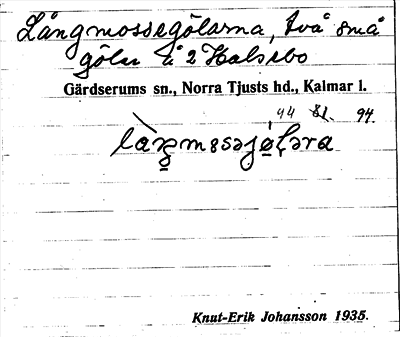 Långmossegölarna, två små
gölar å 2 Halsebo
Gärdserums sn., Norra Tjusts hd., Kalmar l.
44 81. 94.
Knut-Erik Johansson 1935.